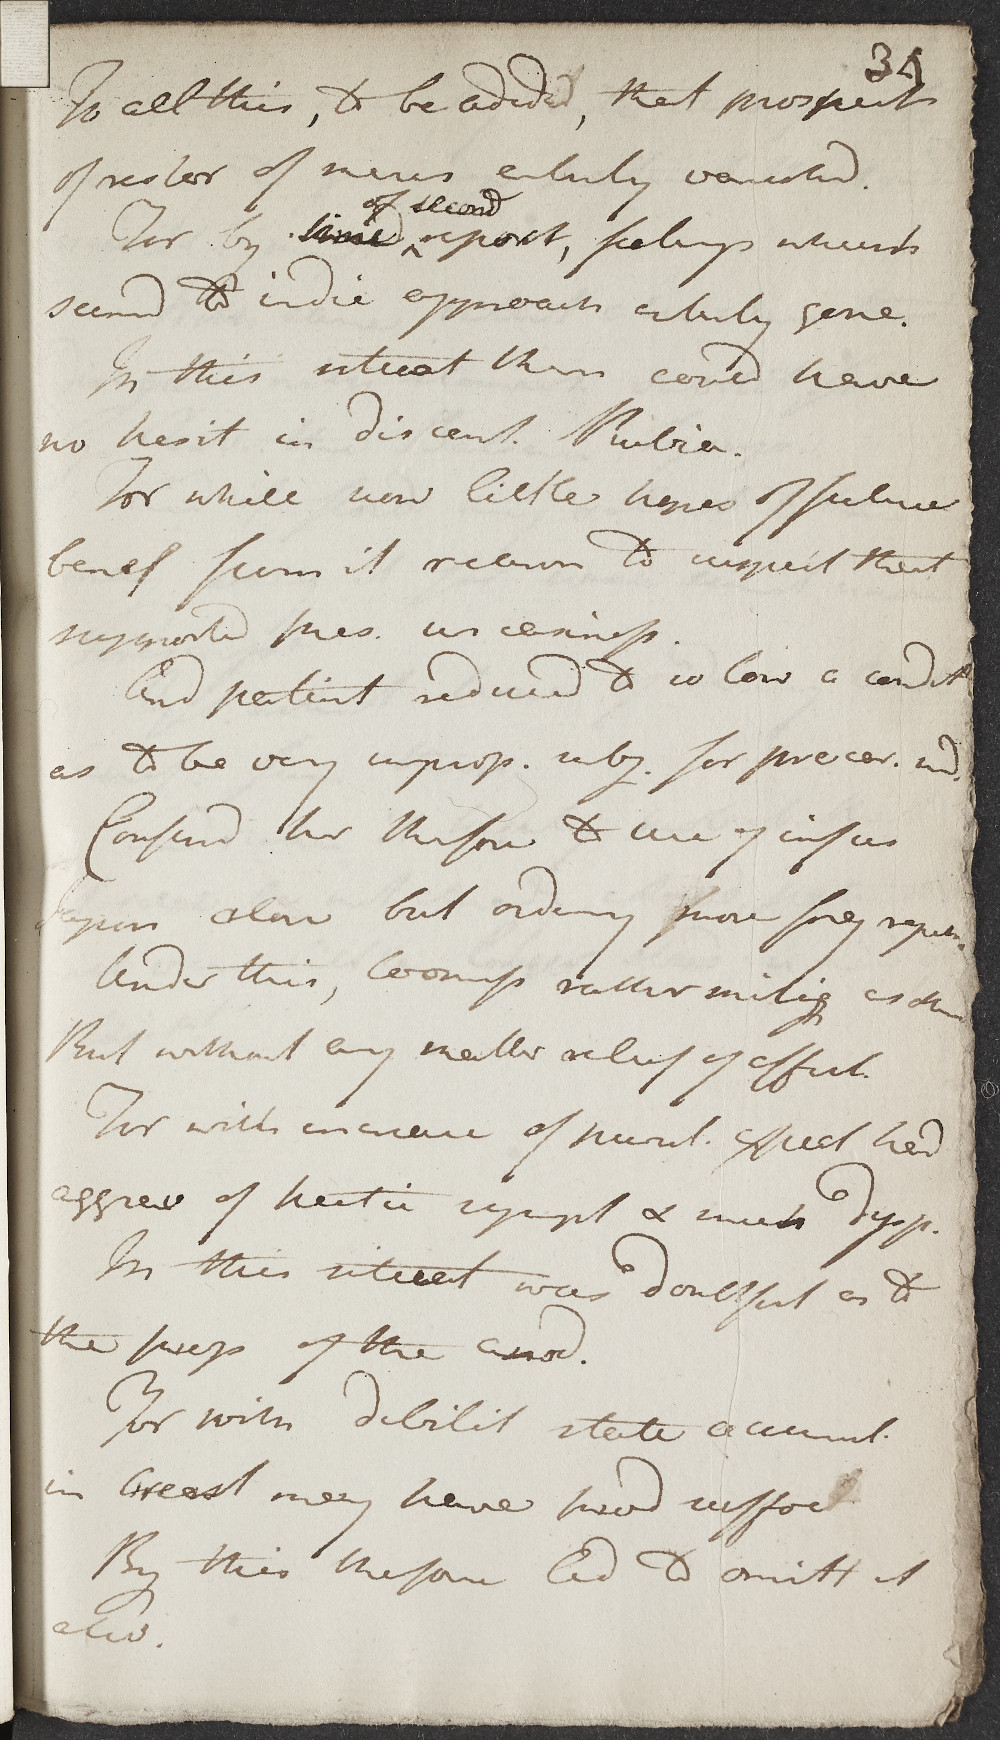 34
To all this, to be added, that prospect
of restor of menses entirely vanishd.
For by time of second report, feelings which
seemd to indic approach entirely gone.
In this situat then coud have
no hesit in discont. Rubia.
For while now little hopes of future
benef from it reason to suspect that
supported pres. uneasiness.
And patient reduced to so low a condit
as to be very improp. subj. for precar. med.
Confind her therefore to use of infus
alone but ordering more freq repetit
Under this, Looseness rather mitig as
But without any matter relief of affect.
For with increase of purul. expect had
aggrav of hectic sympt & much dysp.
In this situat was doubtful as to
the prop of the anod.
For with debilit state accumul.
in breast may have prod suffoc
By this therefore led to omitt it
also.